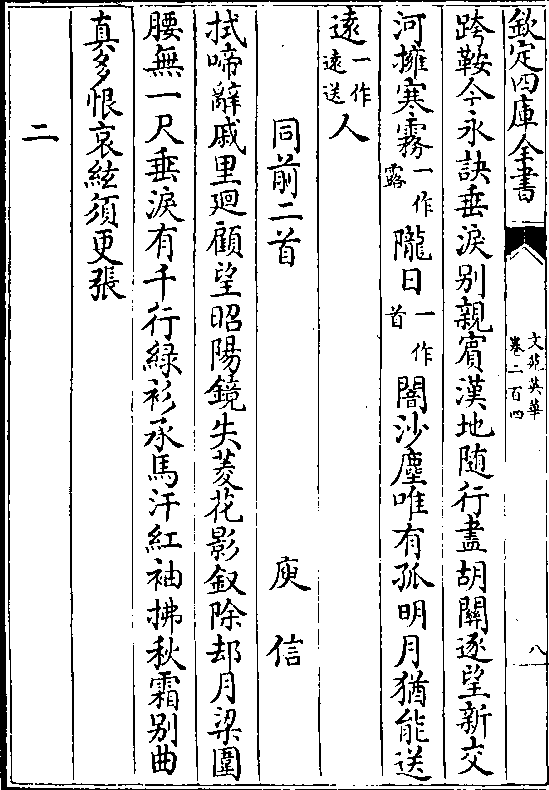 欽定四庫全書
文苑英華
卷二百四
八
跨鞍今永訣垂淚别親賓漢地随行盡胡關逐望新交
河擁寒霧一作露隴日一作首闇沙塵唯有孤明月猶能送
遠一作遠送人
同前二首 庾信
拭啼辭戚里廻顧望昭陽鏡失菱花影釵除却月梁圍
腰無一尺垂淚有千行緑衫承馬汗紅袖拂秋霜别曲
真多恨哀絃須更張
二